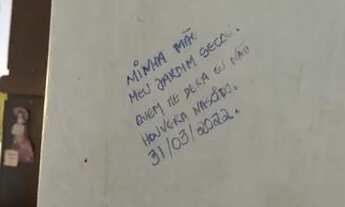 MINHA MÃE
MEU JARDIM SECOU.
QUEM ME DERA EU NÃO
HOUVERA NASCIDO.
31/03/2022.